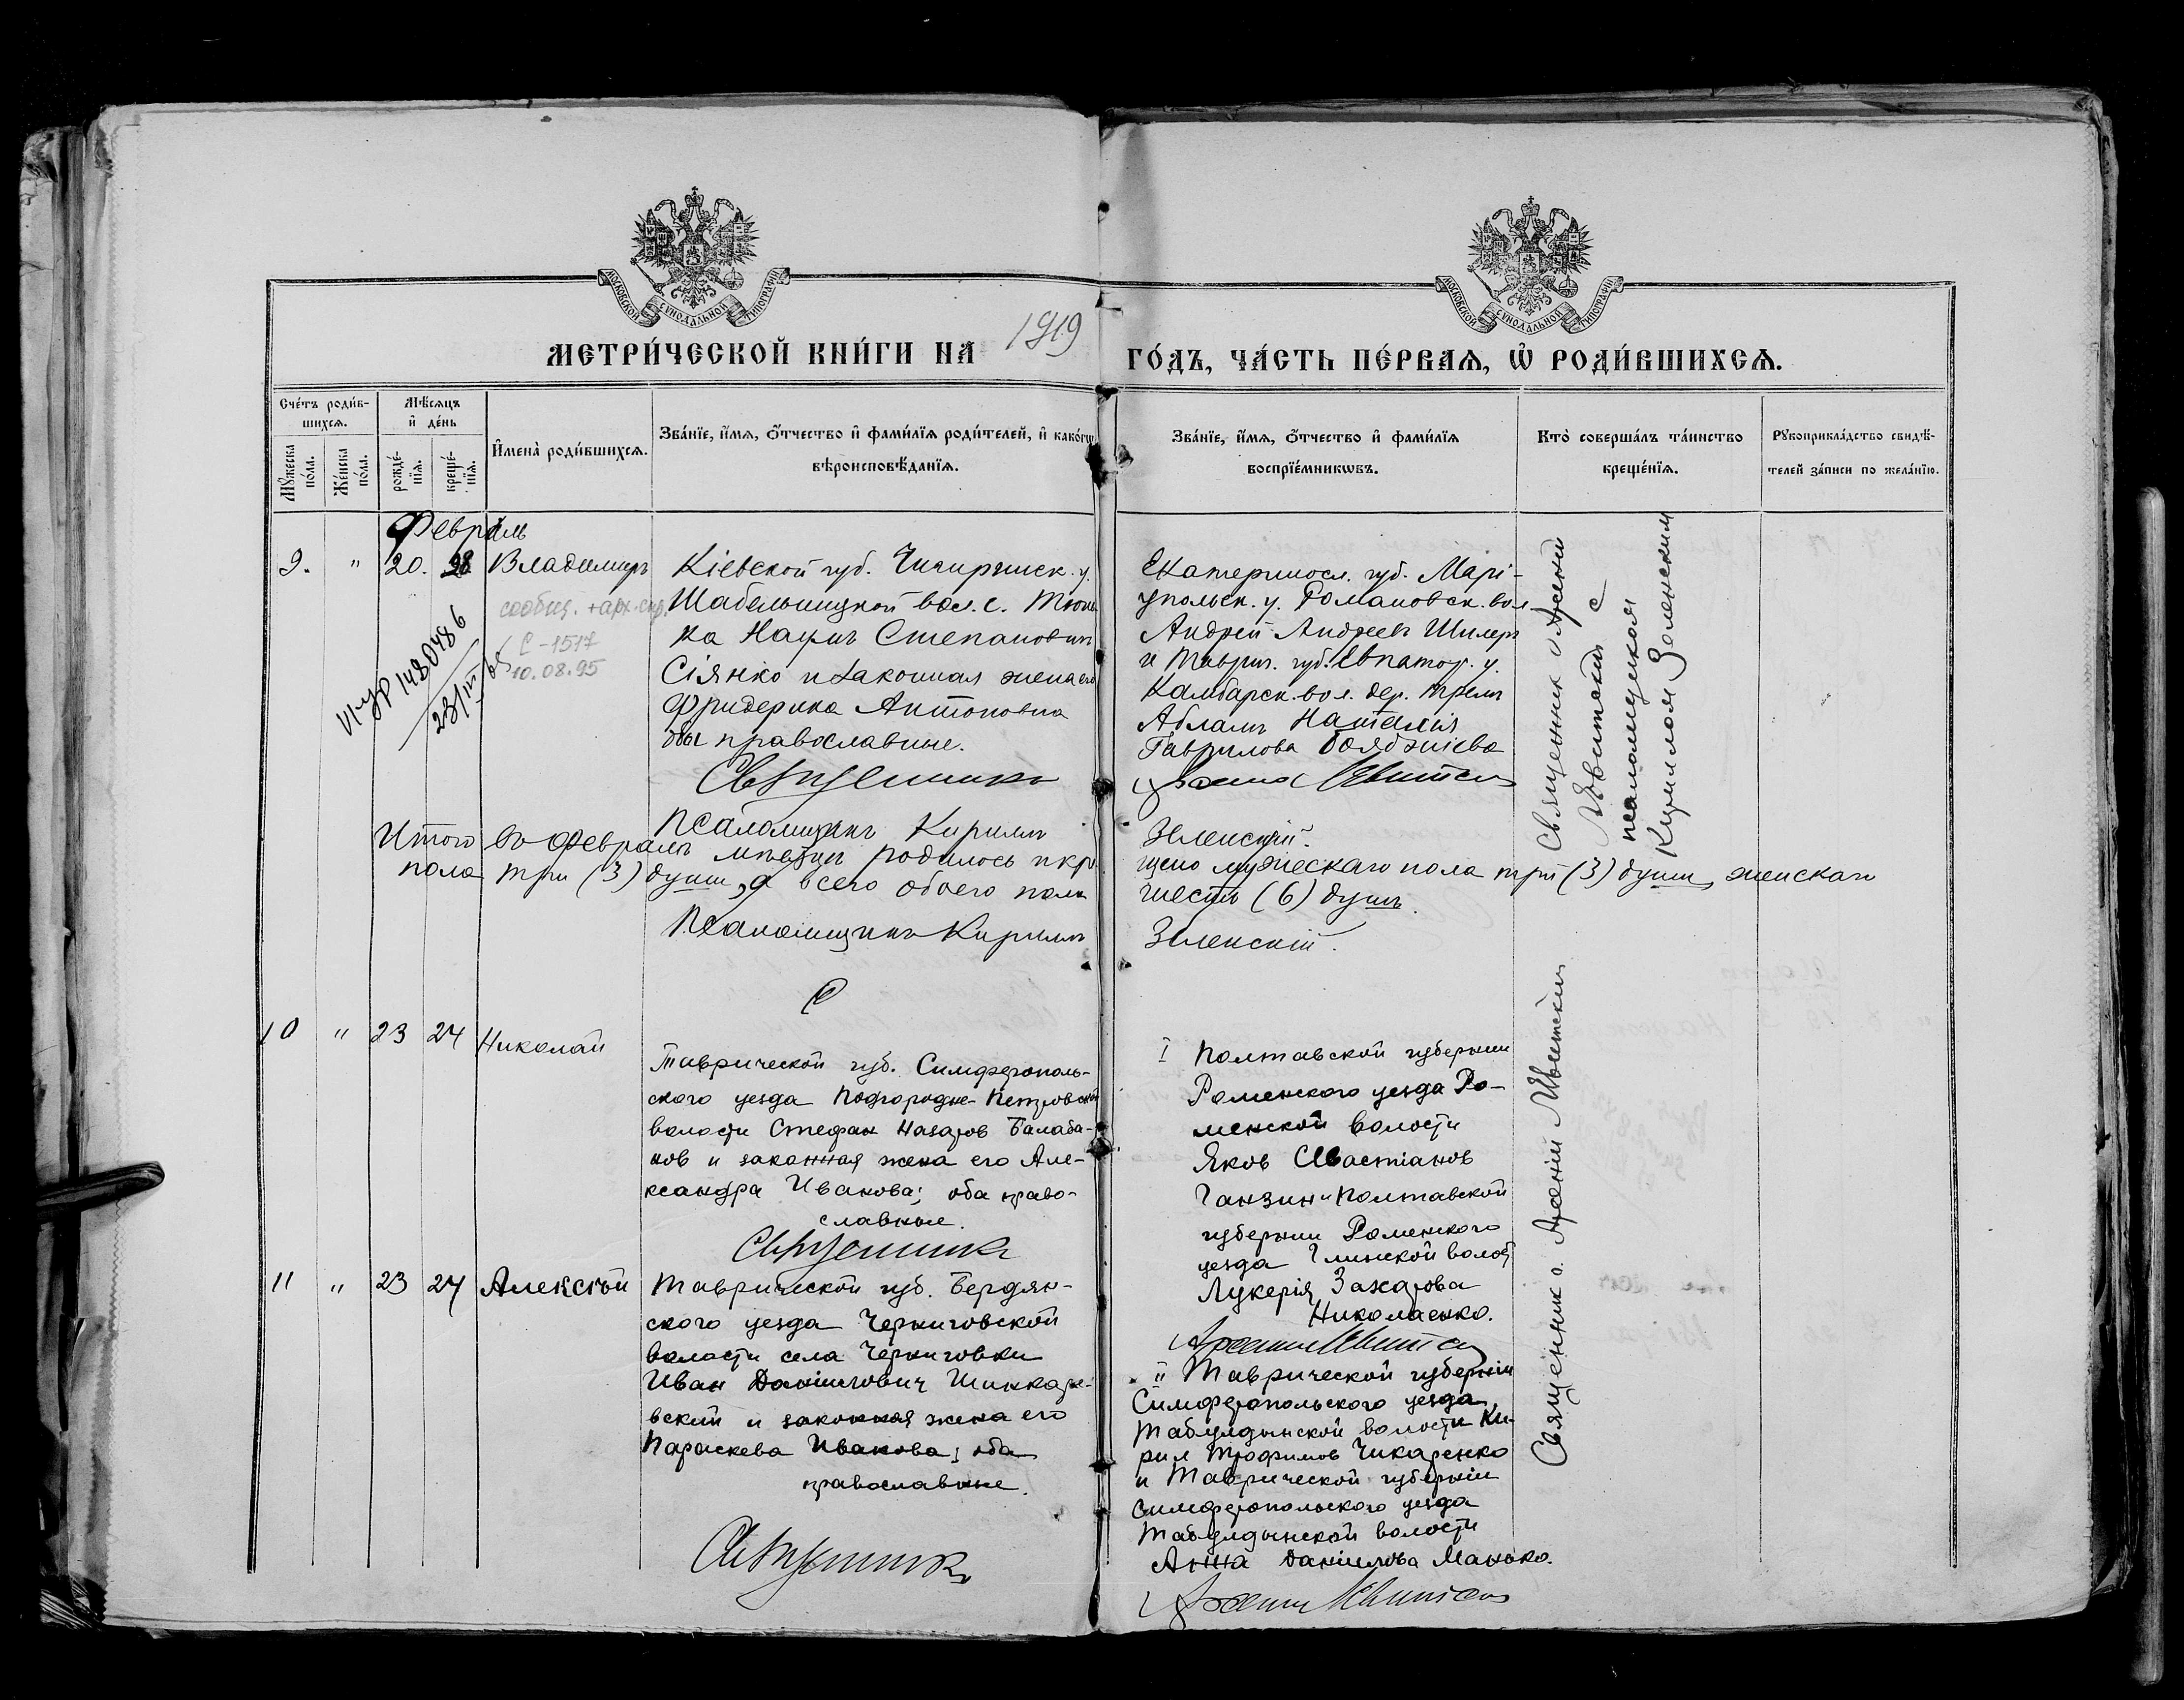 МОСКОВСКОЙ СѴНОДАЛЬНОЙ ТИПОГРАФІИ
МОСКОВСКОЙ СѴНОДАЛЬНОЙ ТИПОГРАФІИ
МЕТРИ́ЧЕСКОЙ КНИ́ГИ НА 1919 ГО́ДЪ, ЧА́СТЬ ПЕ́РВАѦ, Ѡ҆ РОДИ́ВШИХСѦ.
Сче́тъ роди́в-
шихсѧ.
Мꙋ́жеска по́ла.
Же́нска по́ла.
Мѣ́сѧцъ
и҆ де́нь
рожде́нїѧ.
креще́нїѧ.
И҆мена̀ роди́вшихсѧ.
Зва́нїе, и҆́мѧ, ѻ҆́тчество и҆ фами́лїѧ роди́телей, и҆ како́гѡ
вѣроисповѣ́данїѧ.
Зва́нїе, и҆́мѧ, ѻ҆́тчество и҆ фами́лїѧ
воспрїе́мникѡвъ.
Кто̀ соверша́лъ та́инство
креще́нїѧ.
Рꙋкоприкла́дство свидѣ́-
телей за́писи по жела́нїю.
Февраль
9. " 20. 28 Владимиръ
сообщ.
С-1517
10.08.95
148 0486
23/III 65
Кіевской губ. Чигиринск. у.
Шабельницкой вол. с.
Наумъ Степановичъ
Сіянко и законная жена его
Фридерика Антоновна
оба православные.
Екатеринос. губ. Марі-
упольск. у. Романовск. вол
Андрей Андреевъ Шилеръ
и Таврич. губ. Евпатор. у.
Камбарск. вол. дер. Трехъ
Абламъ Наталія
Гаврилова Бояджіева
Священник о Арсений
Левитский с
псаломщиком
Кириллом Зеленским
Псаломщикъ Кириллъ Зеленскій.
Итого въ Февралѣ мѣсяцѣ родилось и кре щено мужескаго пола три (3) души, женскаго
пола три (3) души, а всего обоего пола шесть (6) душъ.
Псаломщикъ Кириллъ Зеленскій.
10 " 23 24 Николай
Таврической губ. Симферополь-
ского уезда Подгородне-Петровской
волости Стефан Назаров Балаба-
нов и законная жена его Але-
ксандра Иванова; оба право-
славные.
Священникъ
I Полтавской губернии
Роменского уезда Ро-
менской волости
Яков Савастіанов
Ганзин и Полтавской
губернии Роменского
уезда Глинской волост
Лукерія Захарова
Николаенко.
Арсений Левитский
Священник о. Арсеній Левитскій
11 " 23 24 Алексѣй
Таврической губ. Бердян-
ского уезда Черниговской
волости села Черниговки
Иван Даніилович Шинкаре-
вский и законная жена его
Параскева Иванова; оба
православные.
Священникъ
" Таврической губерніи
Симферопольского уезда
Табулдынской волости Ки-
рил Трофимов Чикаренко
и Таврической губерніи
Симферопольского уезда
Табулдынской волости
Анна Даніилова Манько.
Арсений Левитский